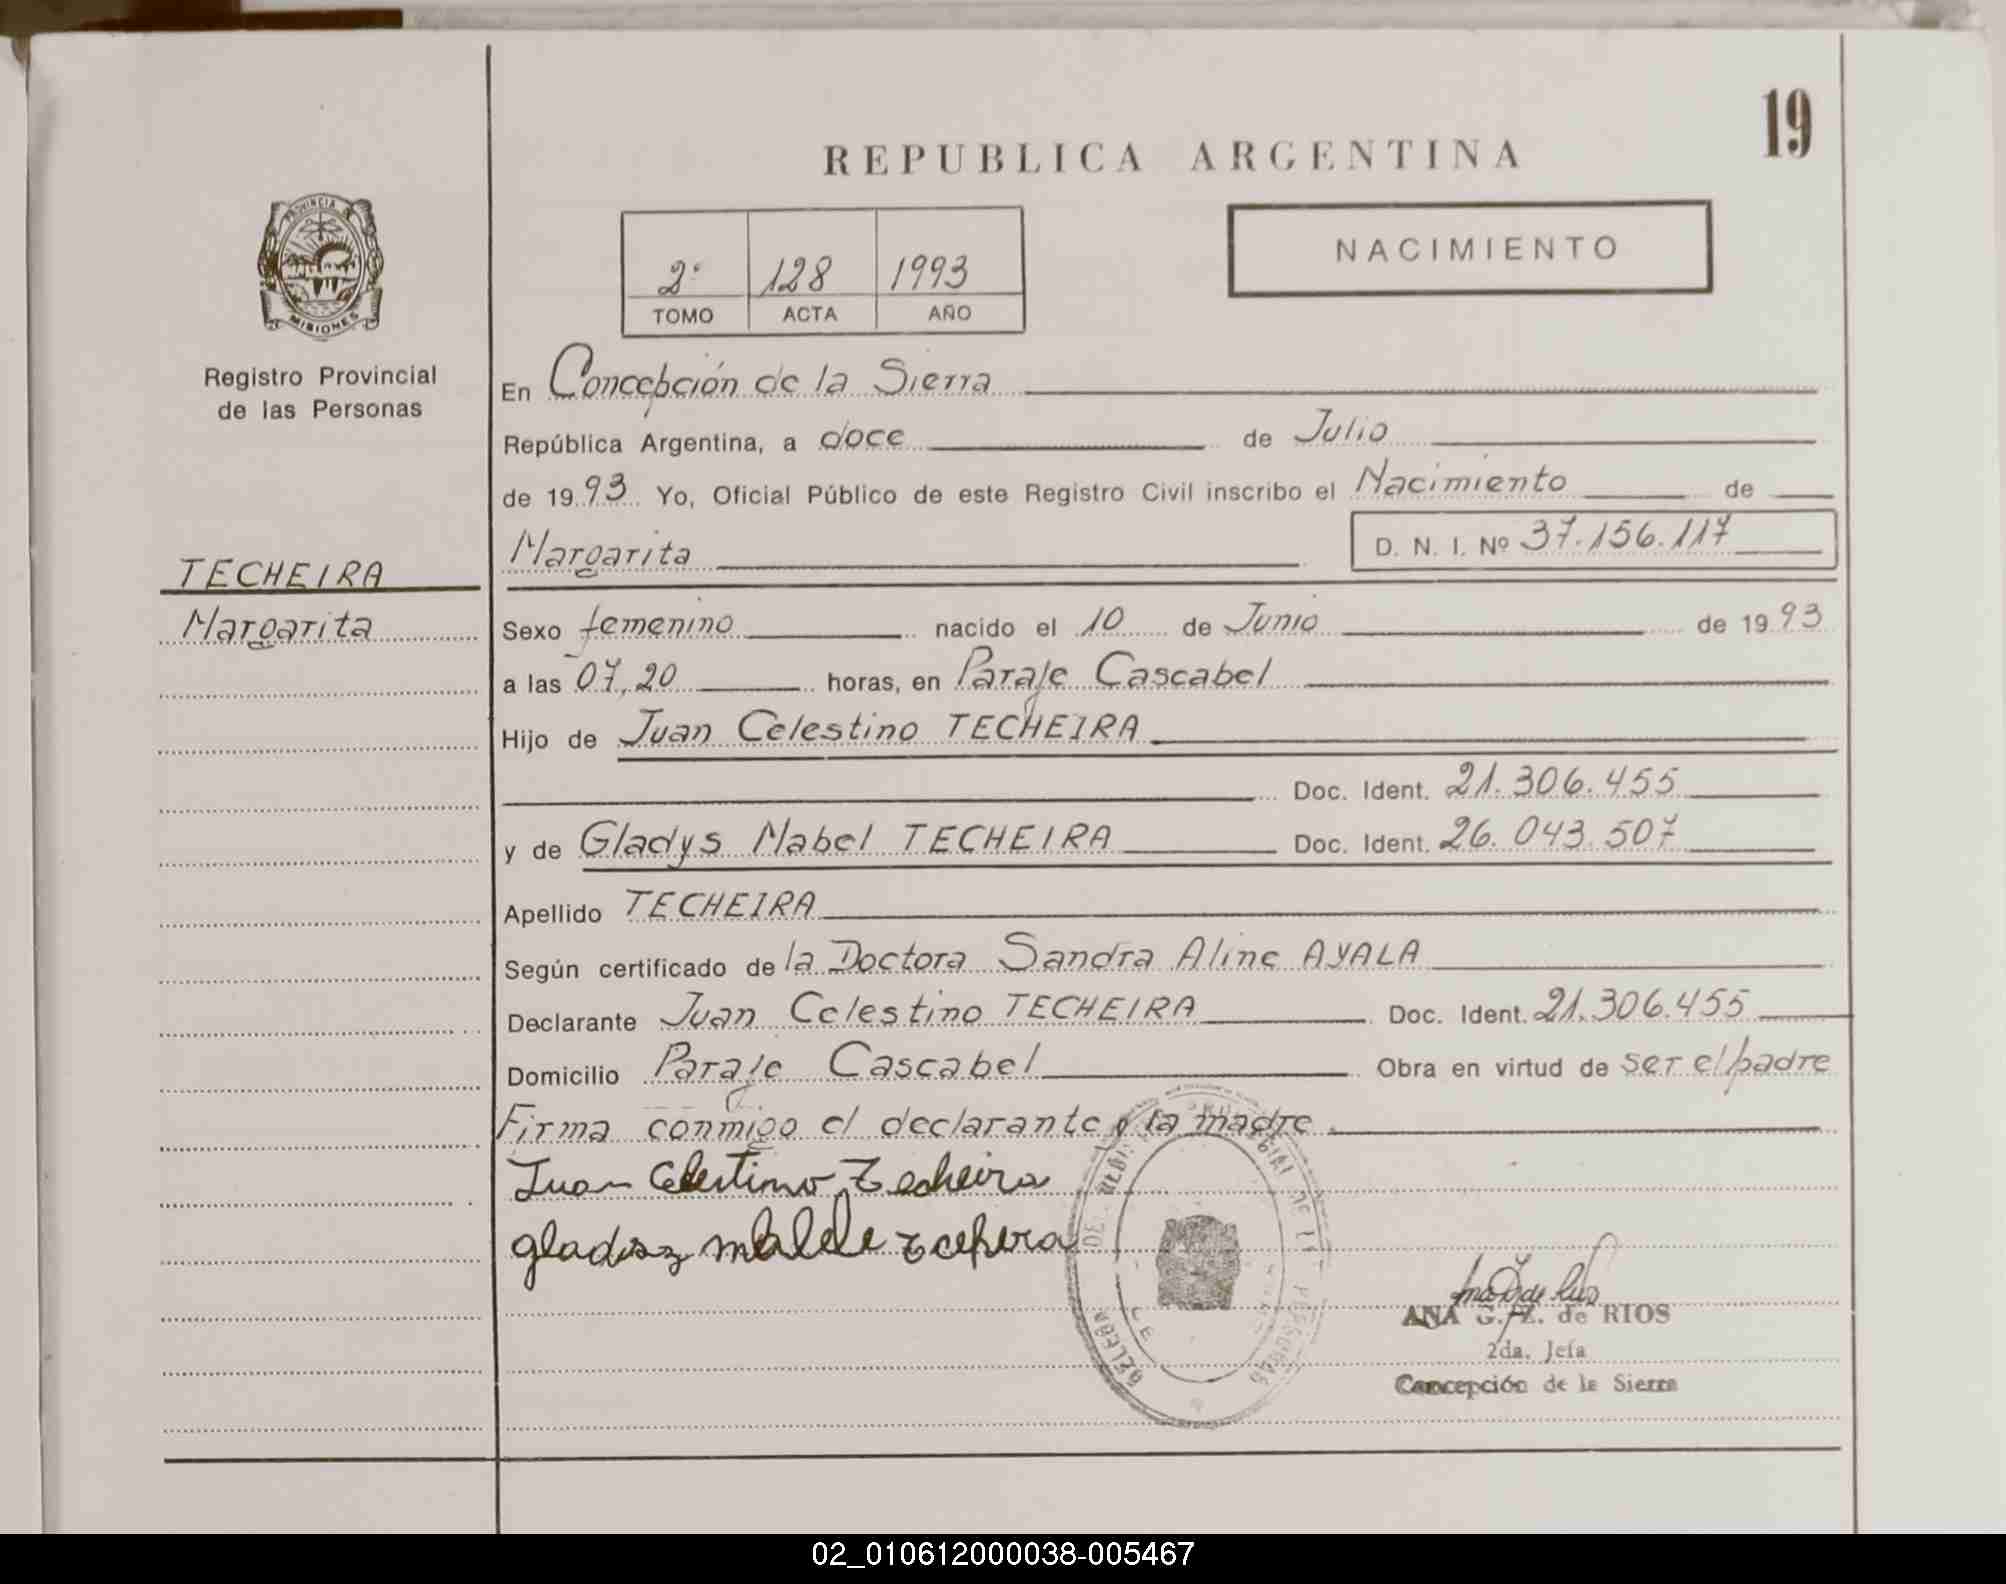 19
REPUBLICA ARGENTINA
PROVINCIA DE
MISIONES
2º 128 1993
TOMO ACTA AÑO
NACIMIENTO
Registro Provincial
de las Personas
En Concepción de la Sierra
República Argentina, a doce de Julio
de 19 93 Yo, Oficial Público de este Registro Civil inscribo el Nacimiento de
Margarita D. N. I. Nº 37.156.117
TECHEIRA
Margarita
Sexo femenino nacido el 10 de Junio de 19 93
a las 07,20 horas, en Paraje Cascabel
Hijo de Juan Celestino TECHEIRA
Doc. Ident. 21.306.455
y de Gladys Mabel TECHEIRA Doc. Ident. 26.043.507
Apellido TECHEIRA
Según certificado de la Doctora Sandra Aline AYALA
Declarante Juan Celestino TECHEIRA Doc. Ident. 21.306.455
Domicilio Paraje Cascabel Obra en virtud de ser el padre
Firma conmigo el declarante y la madre.
Juan Celestino Techeira
ANA G. Z. de RIOS
2da. Jefa
Concepción de la Sierra
02_010612000038-005467